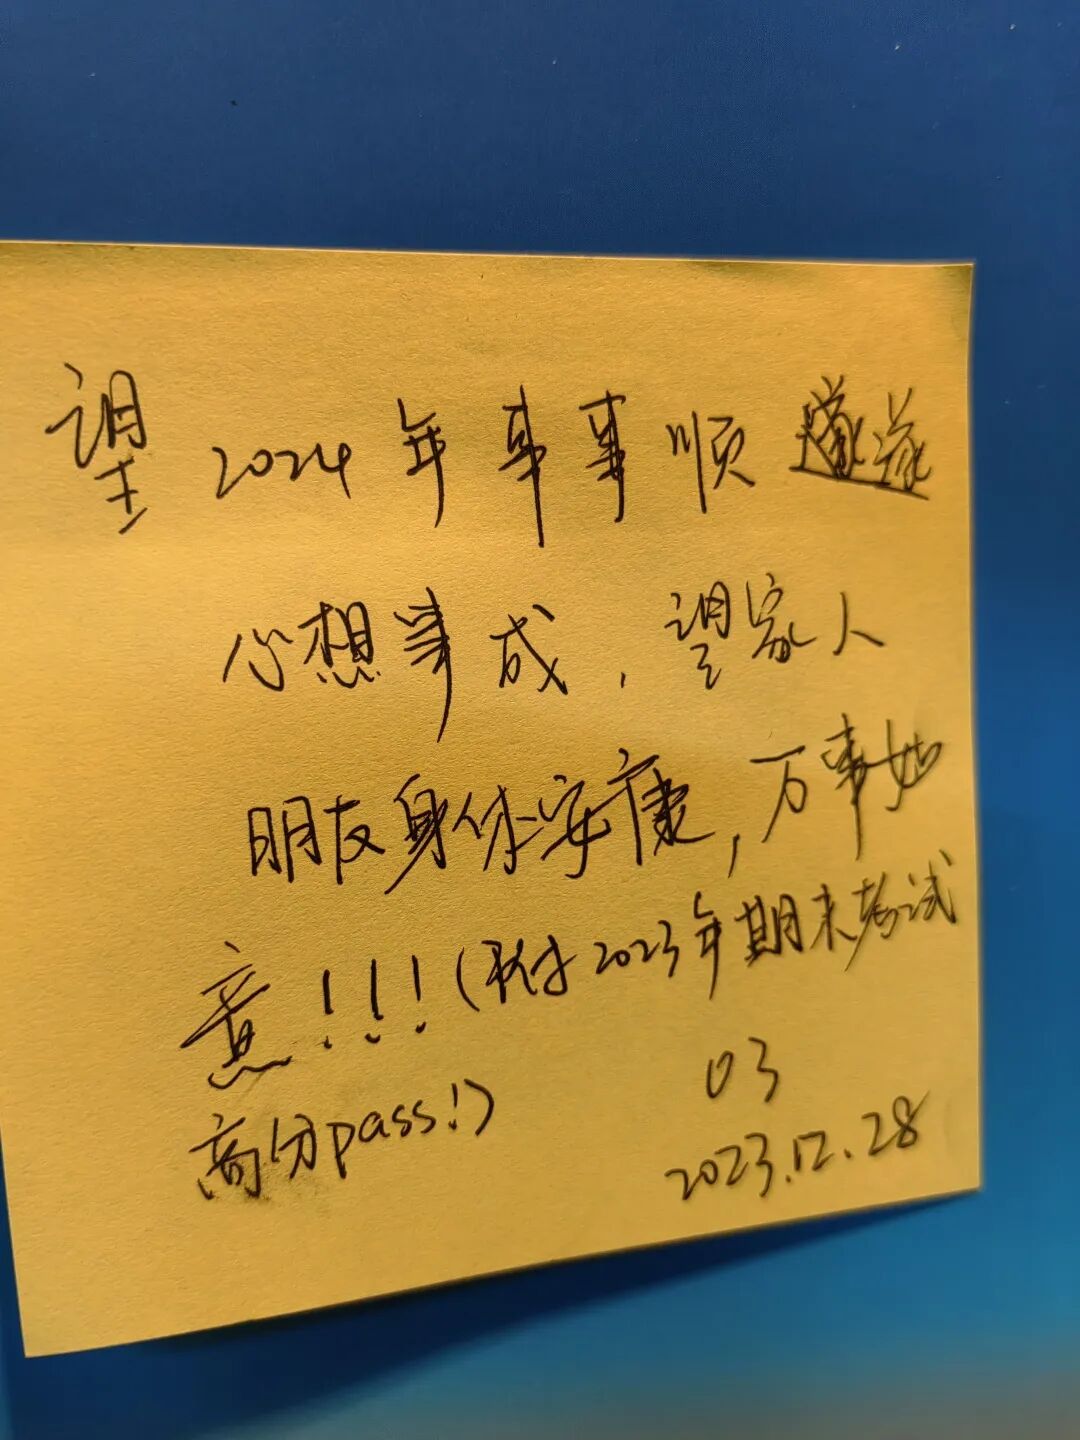 望 2024年事事顺遂
心想事成，望家人
朋友身体安康，万事如
意！！！（附2023年期末考试
高分pass！）
03
2023.12.28